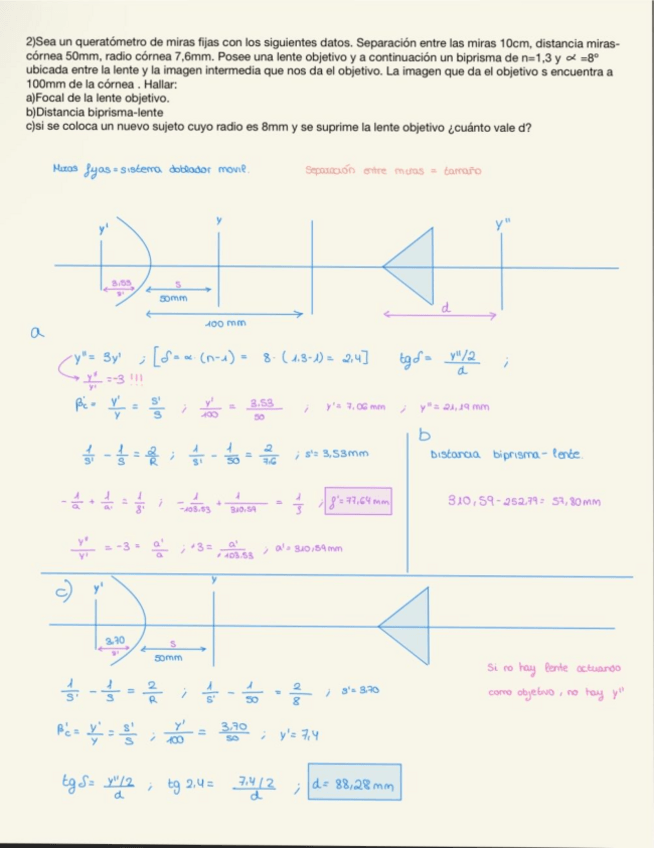 2)Sea un queratómetro de miras fijas con los siguientes datos. Separación entre las miras 10cm, distancia miras-
córnea 50mm, radio córnea 7,6mm. Posee una lente objetivo y a continuación un biprisma de n=1,3 y ∝ =8°
ubicada entre la lente y la imagen intermedia que nos da el objetivo. La imagen que da el objetivo s encuentra a
100mm de la córnea . Hallar:
a)Focal de la lente objetivo.
b)Distancia biprisma-lente
c)si se coloca un nuevo sujeto cuyo radio es 8mm y se suprime la lente objetivo ¿cuánto vale d?
Miras fijas = sistema doblador movil.
Separación entre miras = tamaño
y' y y"
3,53 s
s' 50mm
d
100 mm
a
y" = 3y' ; [δ = ∝ · (n-1) = 8 · (1.3-1) = 2,4] tg δ = y"/2 / d ;
y"/y' = -3 !!!
β'c = y'/y = s'/s ; y'/100 = 3.53/50 ; y' = 7,06 mm ; y" = 21,19 mm
1/s' - 1/s = 2/R ; 1/s' - 1/50 = 2/7.6 ; s' = 3,53mm
b
Distancia biprisma - lente.
310,59 - 252.79 = 57,80 mm
-1/a + 1/a' = 1/f' ; -1/-103.53 + 1/310.59 = 1/f ; f' = 77,64 mm
y"/y' = -3 = a'/a ; +3 = a'/+103.53 ; a' = 310,59mm
c) y' y
3.70 s
s' 50mm
Si no hay lente actuando
como objetivo, no hay y"
1/s' - 1/s = 2/R ; 1/s' - 1/50 = 2/8 ; s' = 3.70
β'c = y'/y = s'/s ; y'/100 = 3,70/50 ; y' = 7,4
tg δ = y"/2 / d ; tg 2,4 = 7,4/2 / d ; d = 88,28 mm